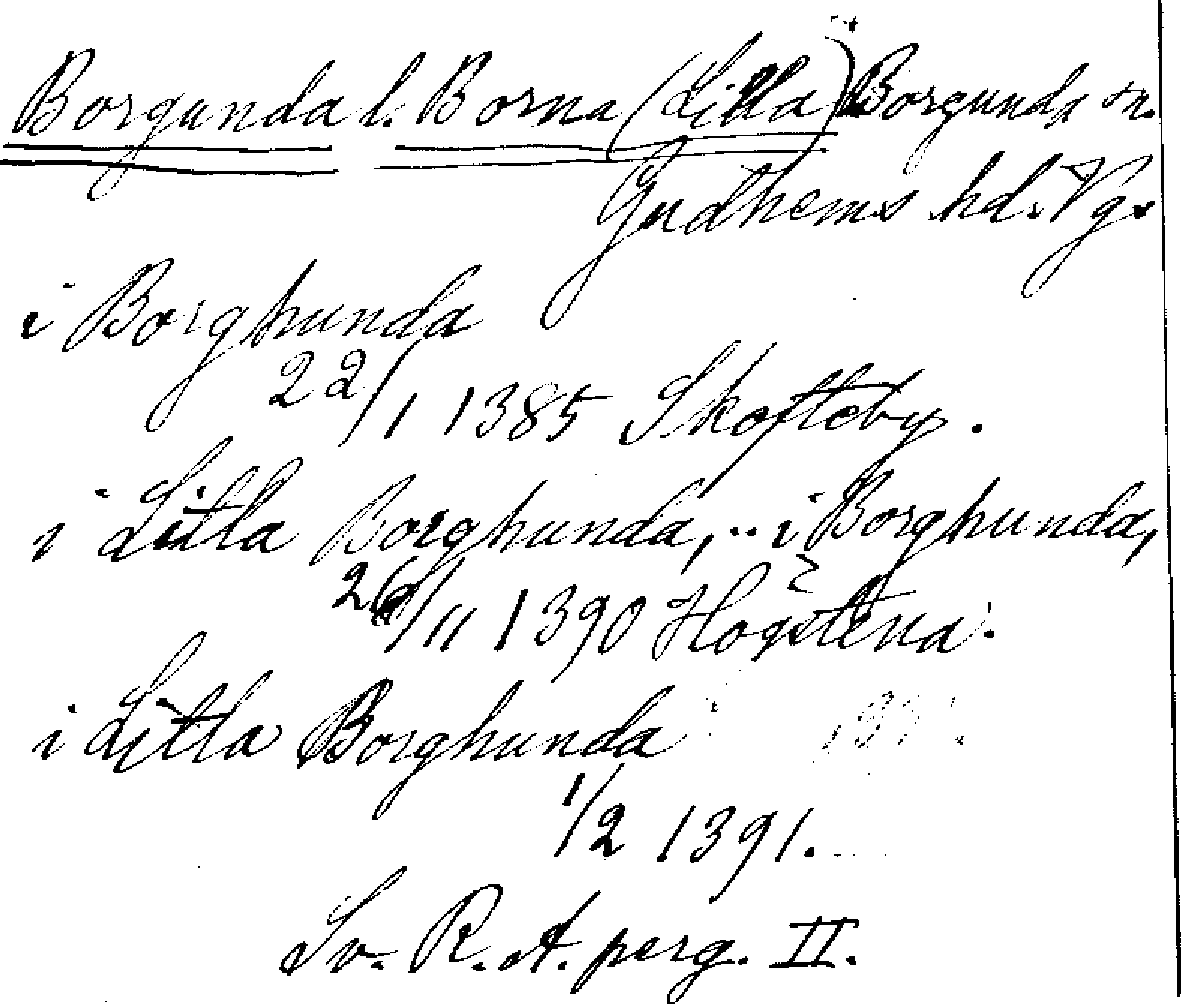 Borgunda l. Borna (Lilla) Borgunda sn.
Gudhems hd. Vg.
i Borghunda
22/1 1385 Skofteby.
i Litla Borghunda, .. i Borghunda,
26/11 1390 Högstena.
i Litla Borghunda
1/2 1391.
Sv. R. A. perg. II.